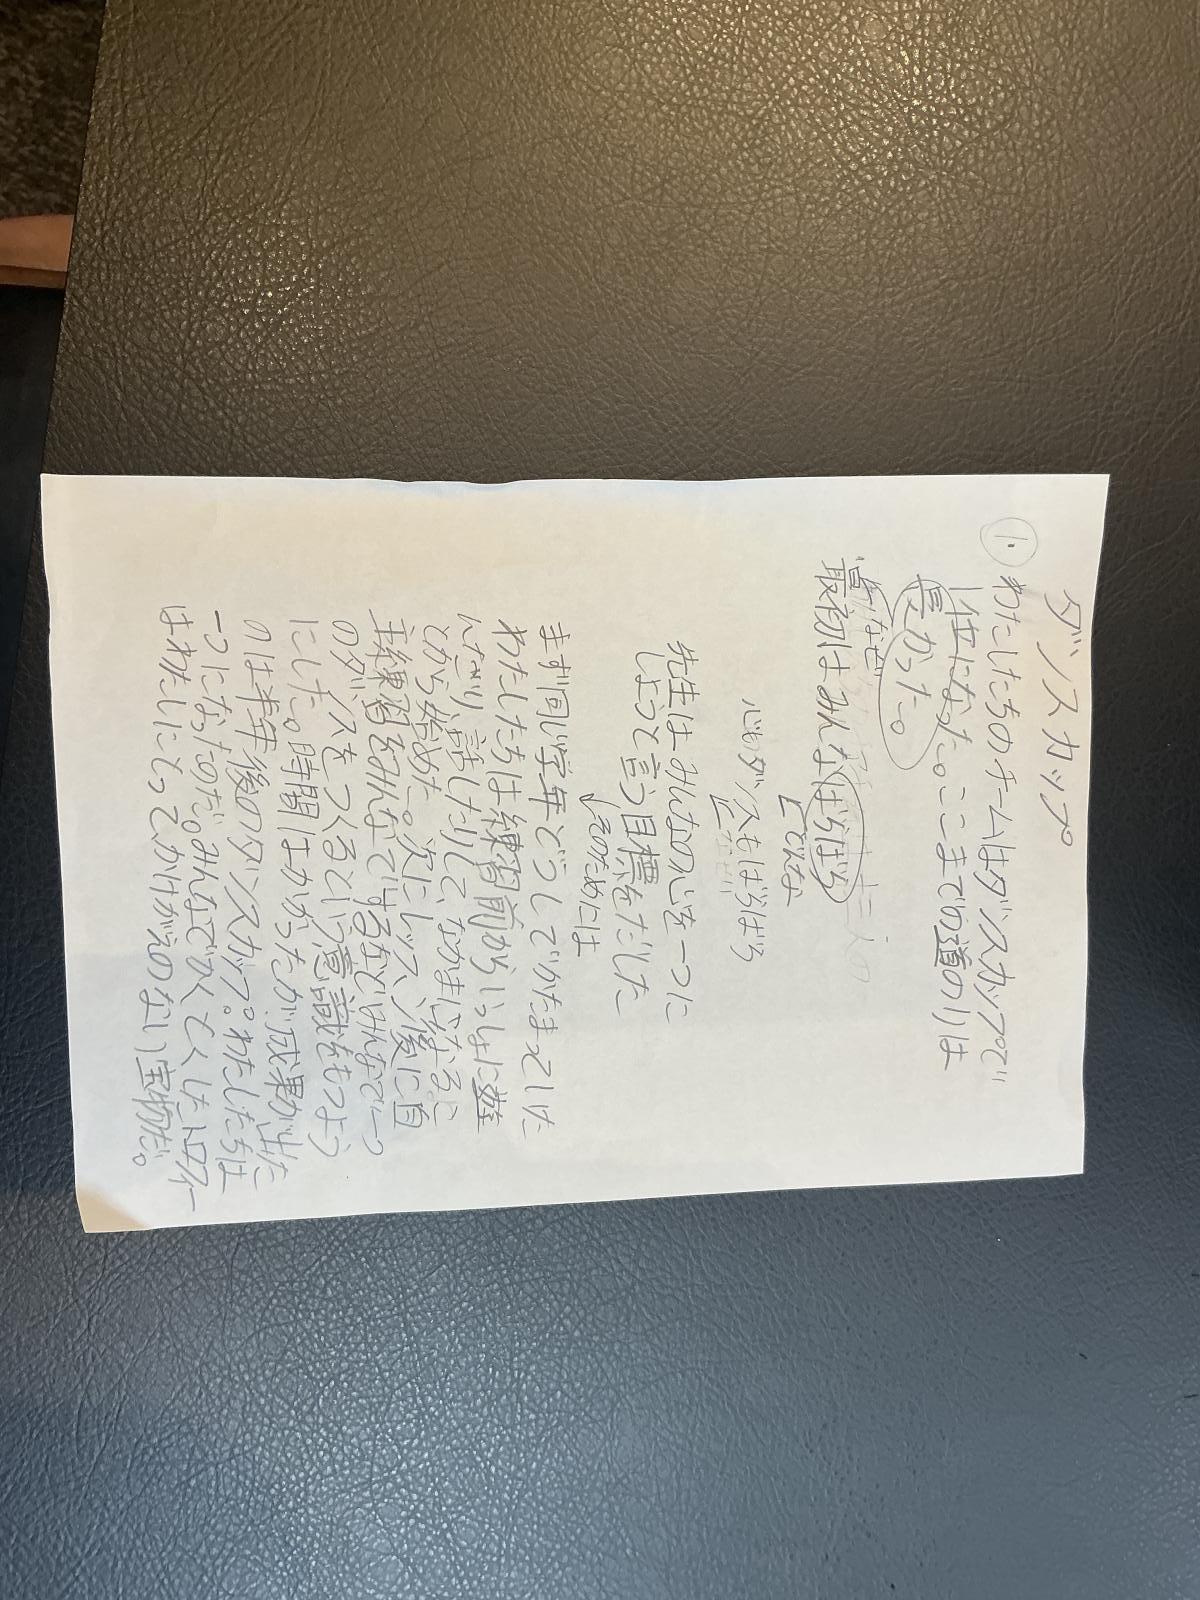 ダンスカップ
1.
わたしたちのチームはダンスカップで
1位になった。ここまでの道のりは
長かった。
なぜ
最初はみんなばらばら
どんな
心もダンスもばらばら
先生はみんなの心を一つに
しようと言う目標をだした
↓そのためには
まず同じ学年どうしでかたまっていた
わたしたちは練習前からいっしょに遊
んだり、話したりして、なかまになるこ
とから始めた。次にレッスン後に自
主練習をみんなでするなどみんなで一つ
のダンスをつくるという意識をもつよう
にした。時間はかかったが成果が出た
のは半年後のダンスカップ。わたしたちは
一つになったのだ。みんなでかくとくしたトロフィー
はわたしにとってかけがえのない宝物だ。